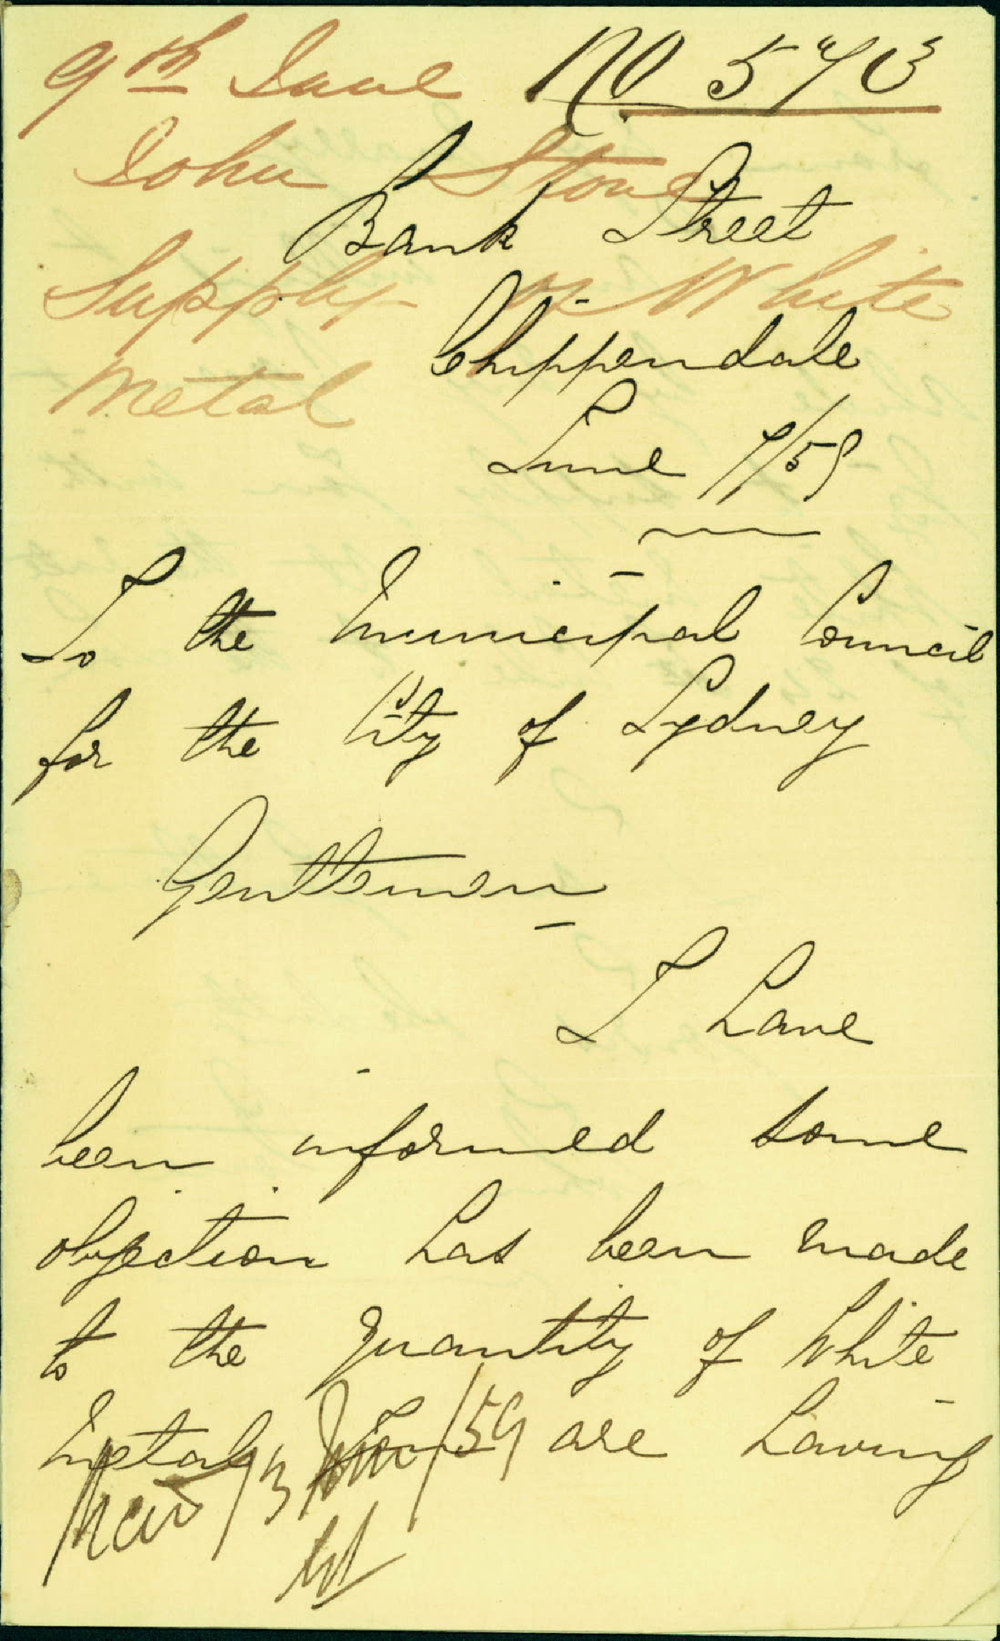 9th June No 573
John Stone
Bank Street
Supply of White
Chippendale
Metal
June 7/59
To the Municipal Council
for the City of Sydney
Gentlemen
I have
been informed some
objection has been made
to the Quantity of White
Metal you are having
Read 13 June/59